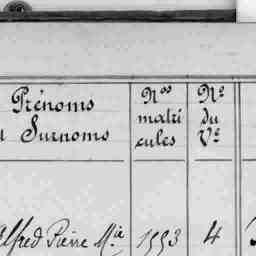 Prénoms
Surnoms
Nos
matri
cules
No
du
Vé
Alfred Pierre Mie 1553 4